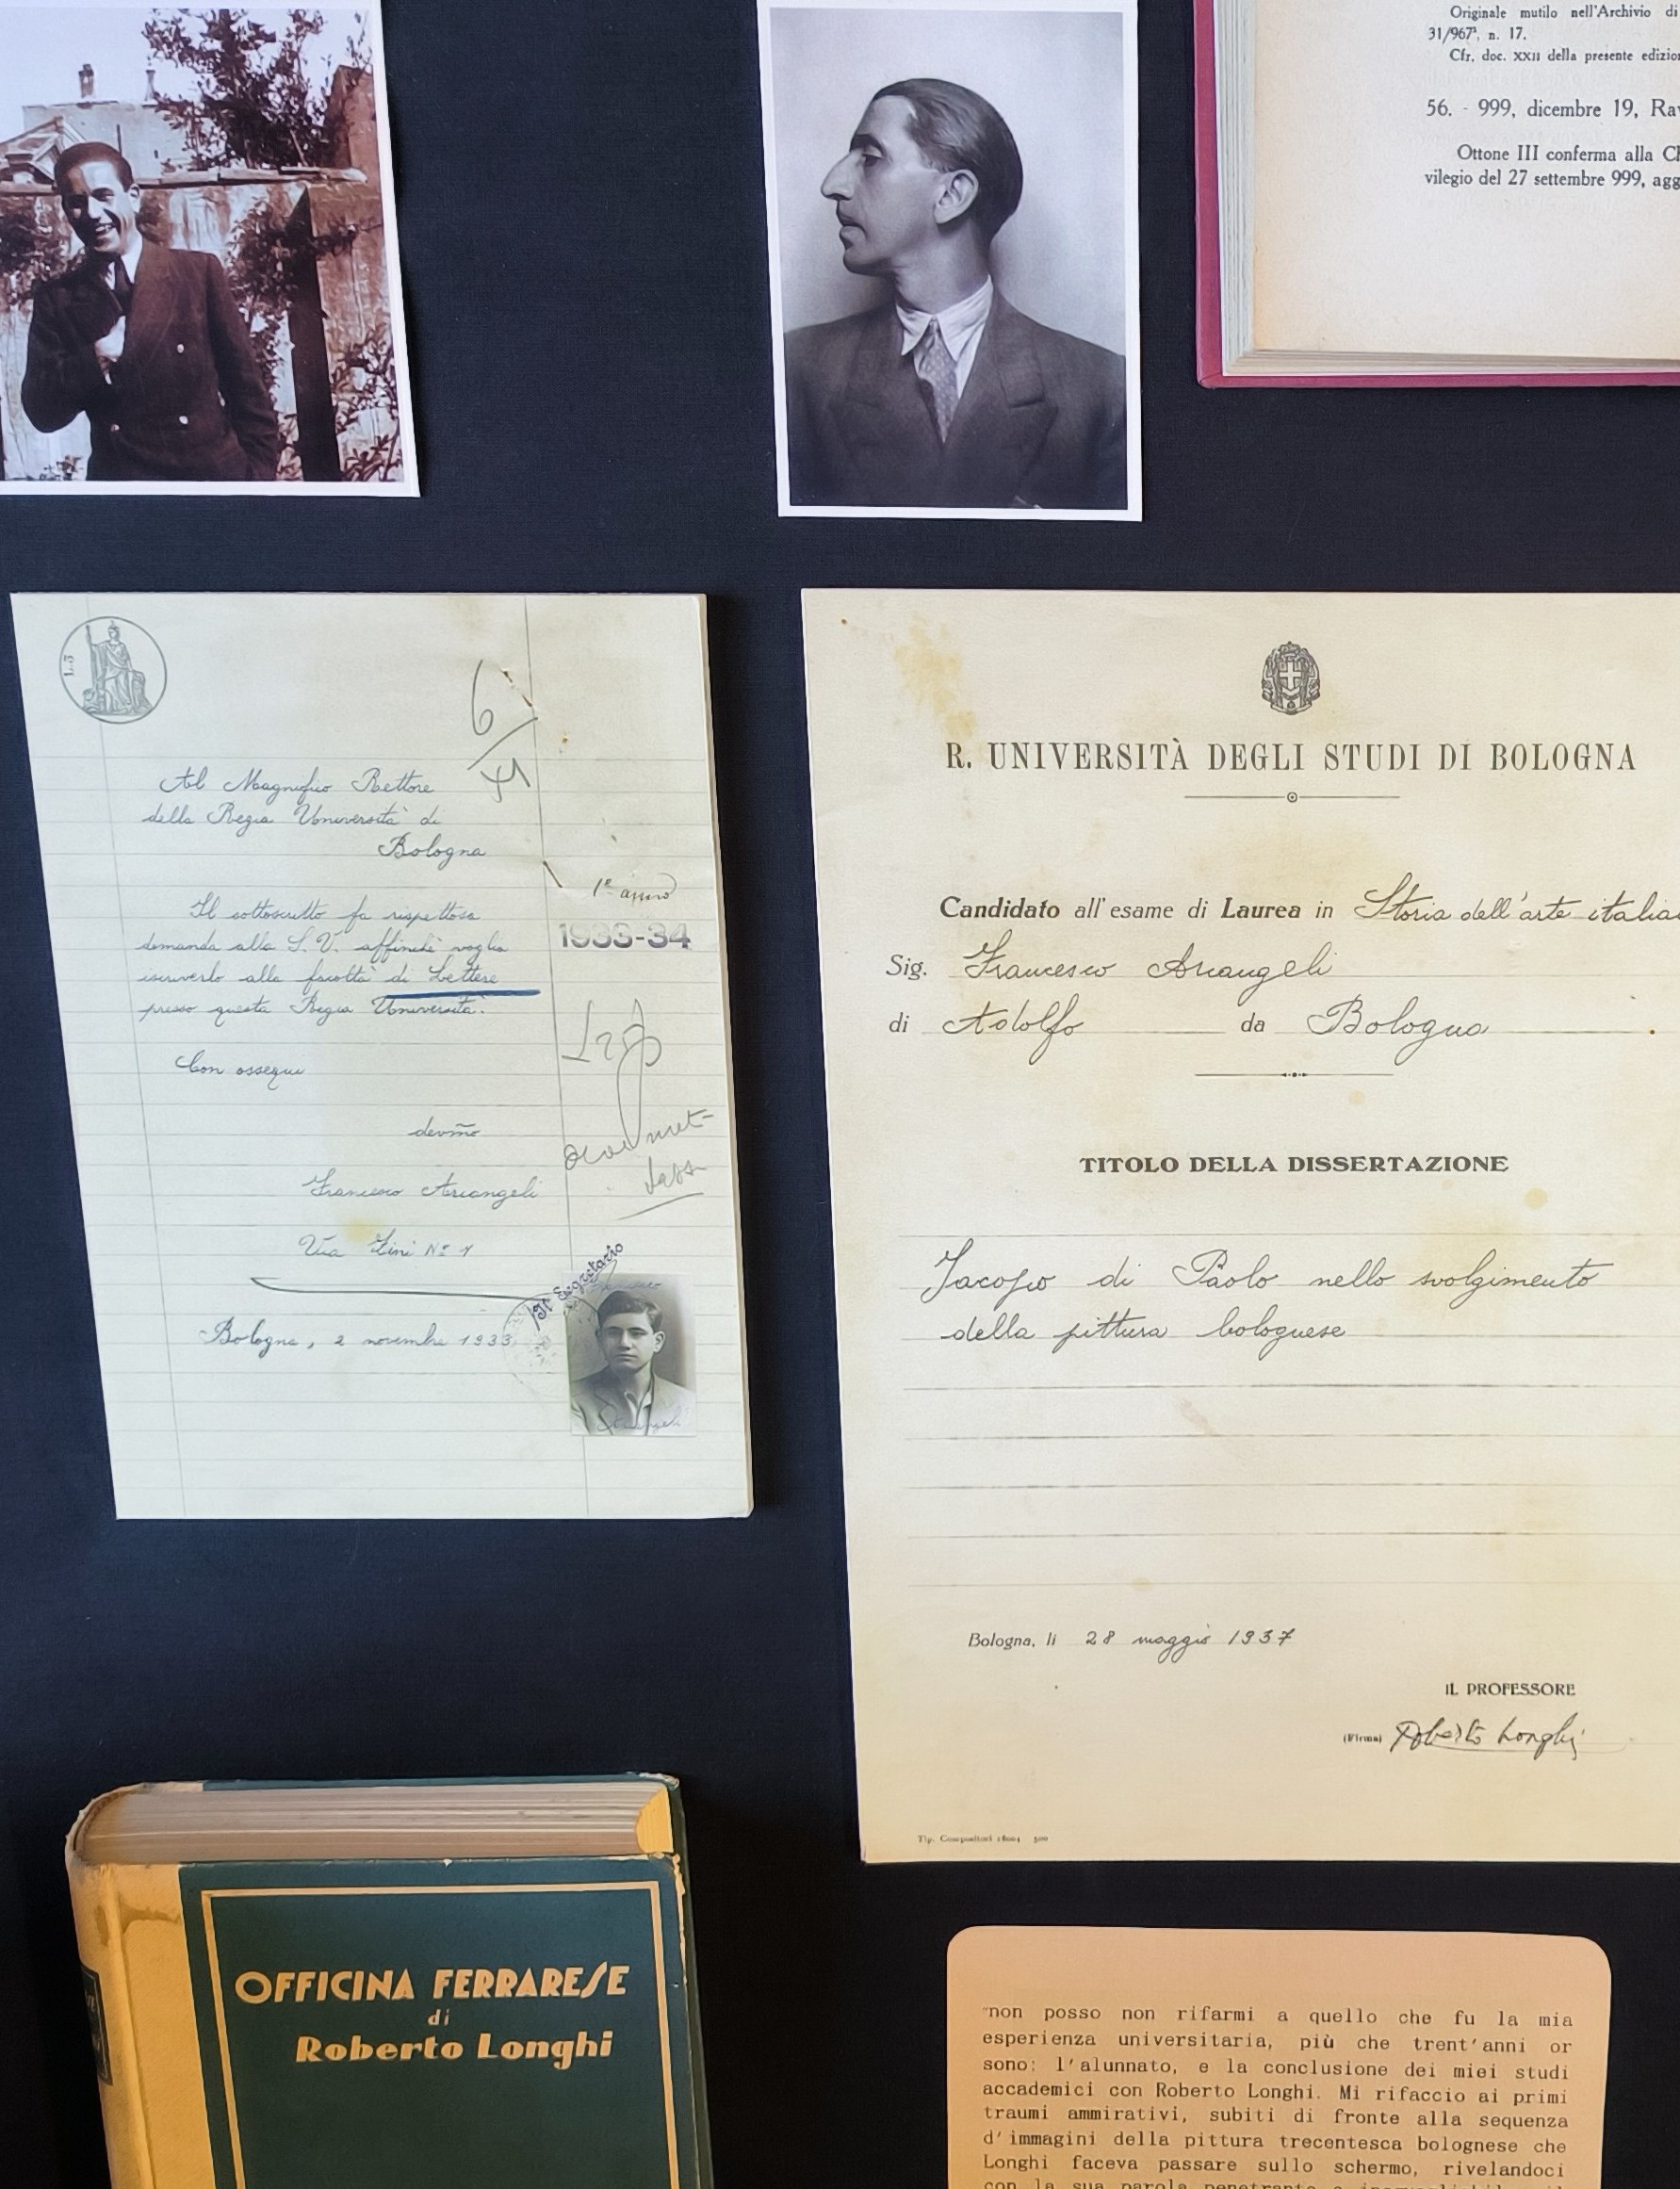 Originale mutilo nell'Archivio di
31/967³, n. 17.
Cfr. doc. XXII della presente
56. - 999, dicembre 19,
Ottone III conferma alla
vilegio del 27 settembre 999,
L.3
6
XI
Al Magnifico Rettore
della Regia Università di
Bologna
Il sottoscritto fa rispettosa
domanda alla S. V. affinchè voglia
iscriverlo alla facoltà di Lettere
presso questa Regia Università.
Con ossequi
devmo
Francesco Arcangeli
Via Zini No 1
Bologna, 2 novembre 1933
1º anno
1933-34
Il Segretario
R. UNIVERSITÀ DEGLI STUDI DI BOLOGNA
Candidato all'esame di Laurea in Storia dell'arte
Sig. Francesco Arcangeli
di Adolfo da Bologna
TITOLO DELLA DISSERTAZIONE
Jacopo di Paolo nello svolgimento
della pittura bolognese
Bologna, li 28 maggio 1937
IL PROFESSORE
(Firma) Roberto Longhi
Tip. Compositori
OFFICINA FERRARESE
di
Roberto Longhi
"non posso non rifarmi a quello che fu la mia
esperienza universitaria, più che trent'anni or
sono: l'alunnato, e la conclusione dei miei studi
accademici con Roberto Longhi. Mi rifaccio ai primi
traumi ammirativi, subiti di fronte alla sequenza
d'immagini della pittura trecentesca bolognese che
Longhi faceva passare sullo schermo, rivelandoci
con la sua parola penetrante e